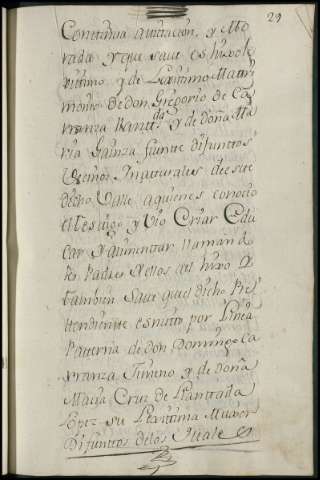 29
Conttinua avitacion, y Mo
rada y que save es hixo le
xitimo y de Lexitimo Matri
monio de don Gregorio de Ca
rranza y de doña Ma
ria Gainza Juntte difunttos
Vecinos Inatturales de este
dicho Valle aquienes conocio
el testigo y Vio Criar Edu
car y alimenttar llamand
les Padres y ellos a el hixo Y
tambien save que el dicho Pre
ttendiente es nietto por Linea
Patterna de don Domingo Ca
rranza y de doña
Maria Cruz de Llanttada
su Lexitima Muxer
Difunttos de los quales